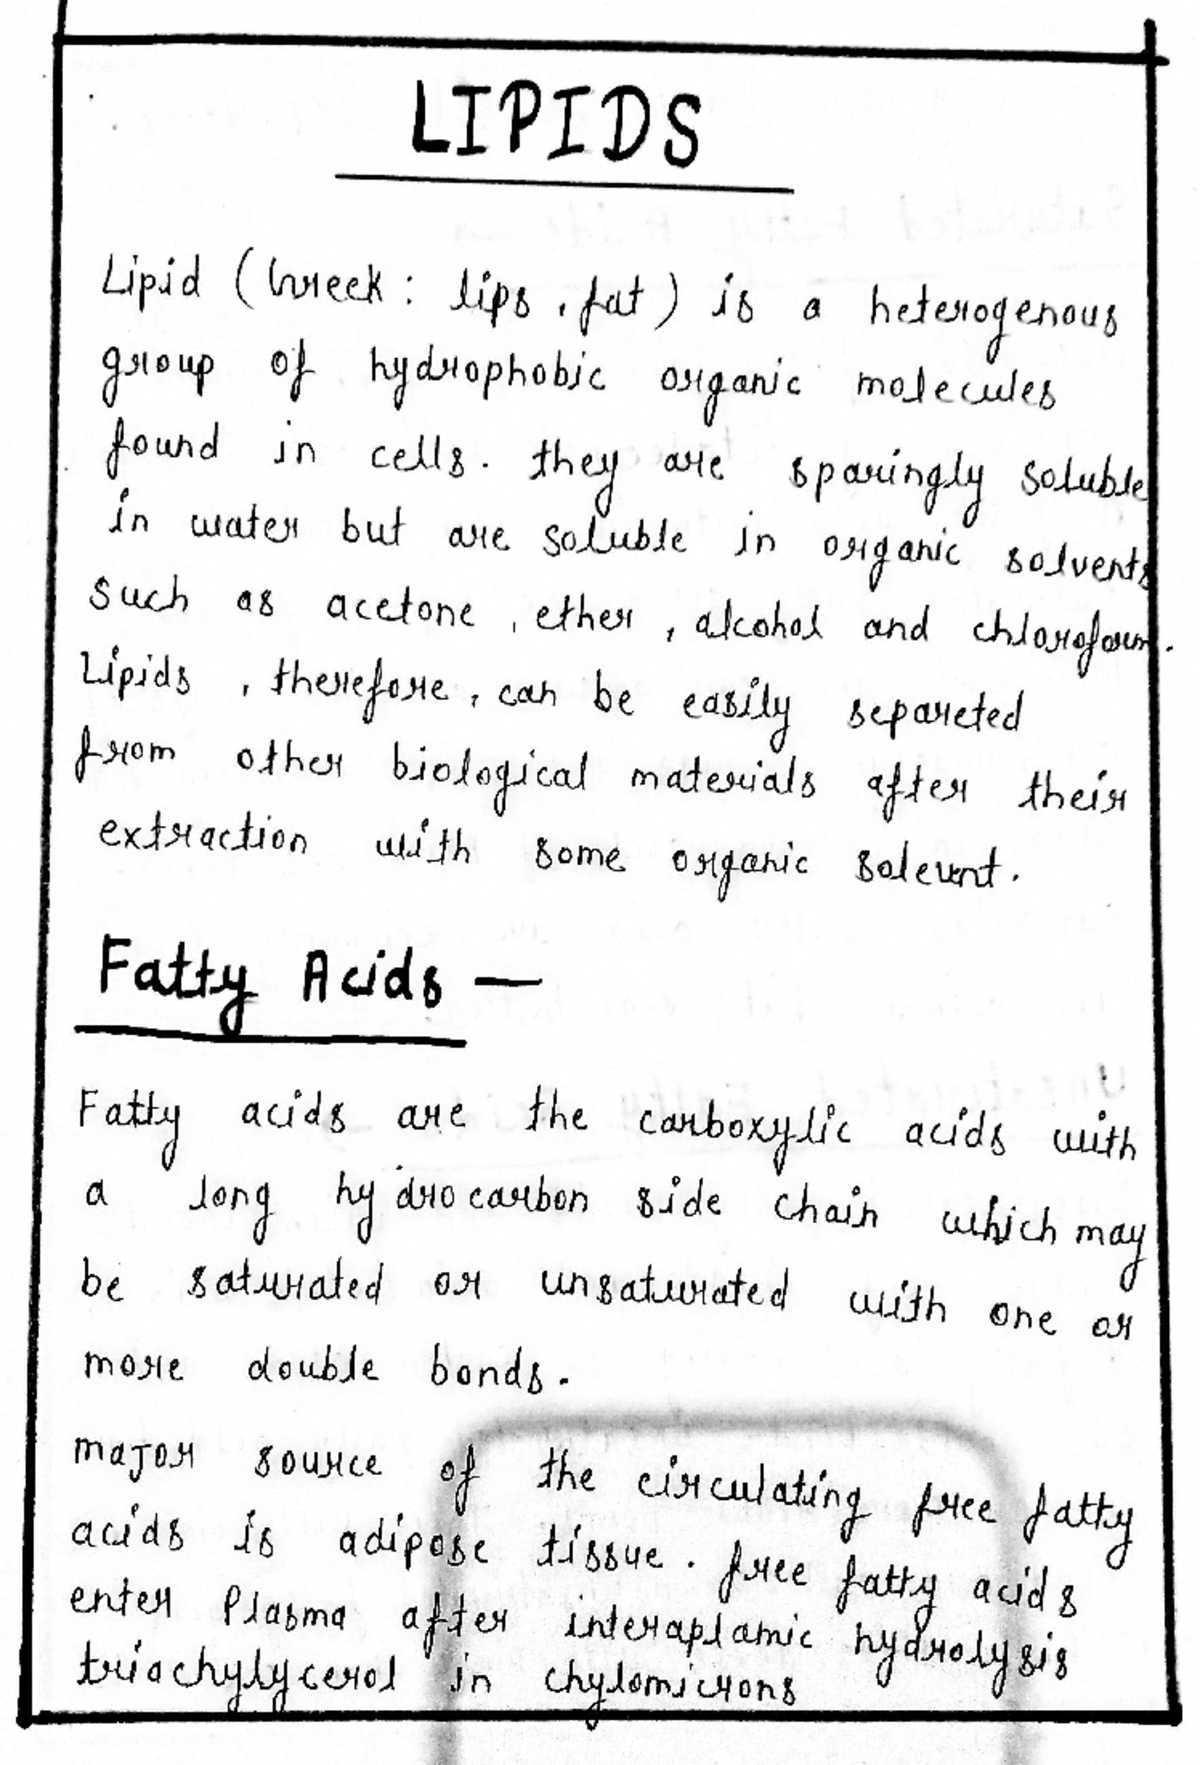 LIPIDS
Lipid (Greek: lips, fat) is a heterogenous
group of hydrophobic organic molecules
found in cells. they are sparingly soluble
in water but are soluble in organic solvents
such as acetone, ether, alcohol and chloroform.
Lipids, therefore, can be easily separeted
from other biological materials after their
extraction with some organic solevent.
Fatty Acids —
Fatty acids are the carboxylic acids with
a long hydrocarbon side chain which may
be saturated or unsaturated with one or
more double bonds.
major source of the circulating free fatty
acids is adipose tissue. free fatty acids
enter Plasma after interaplamic hydrolysis
triachylycerol in chylomicrons